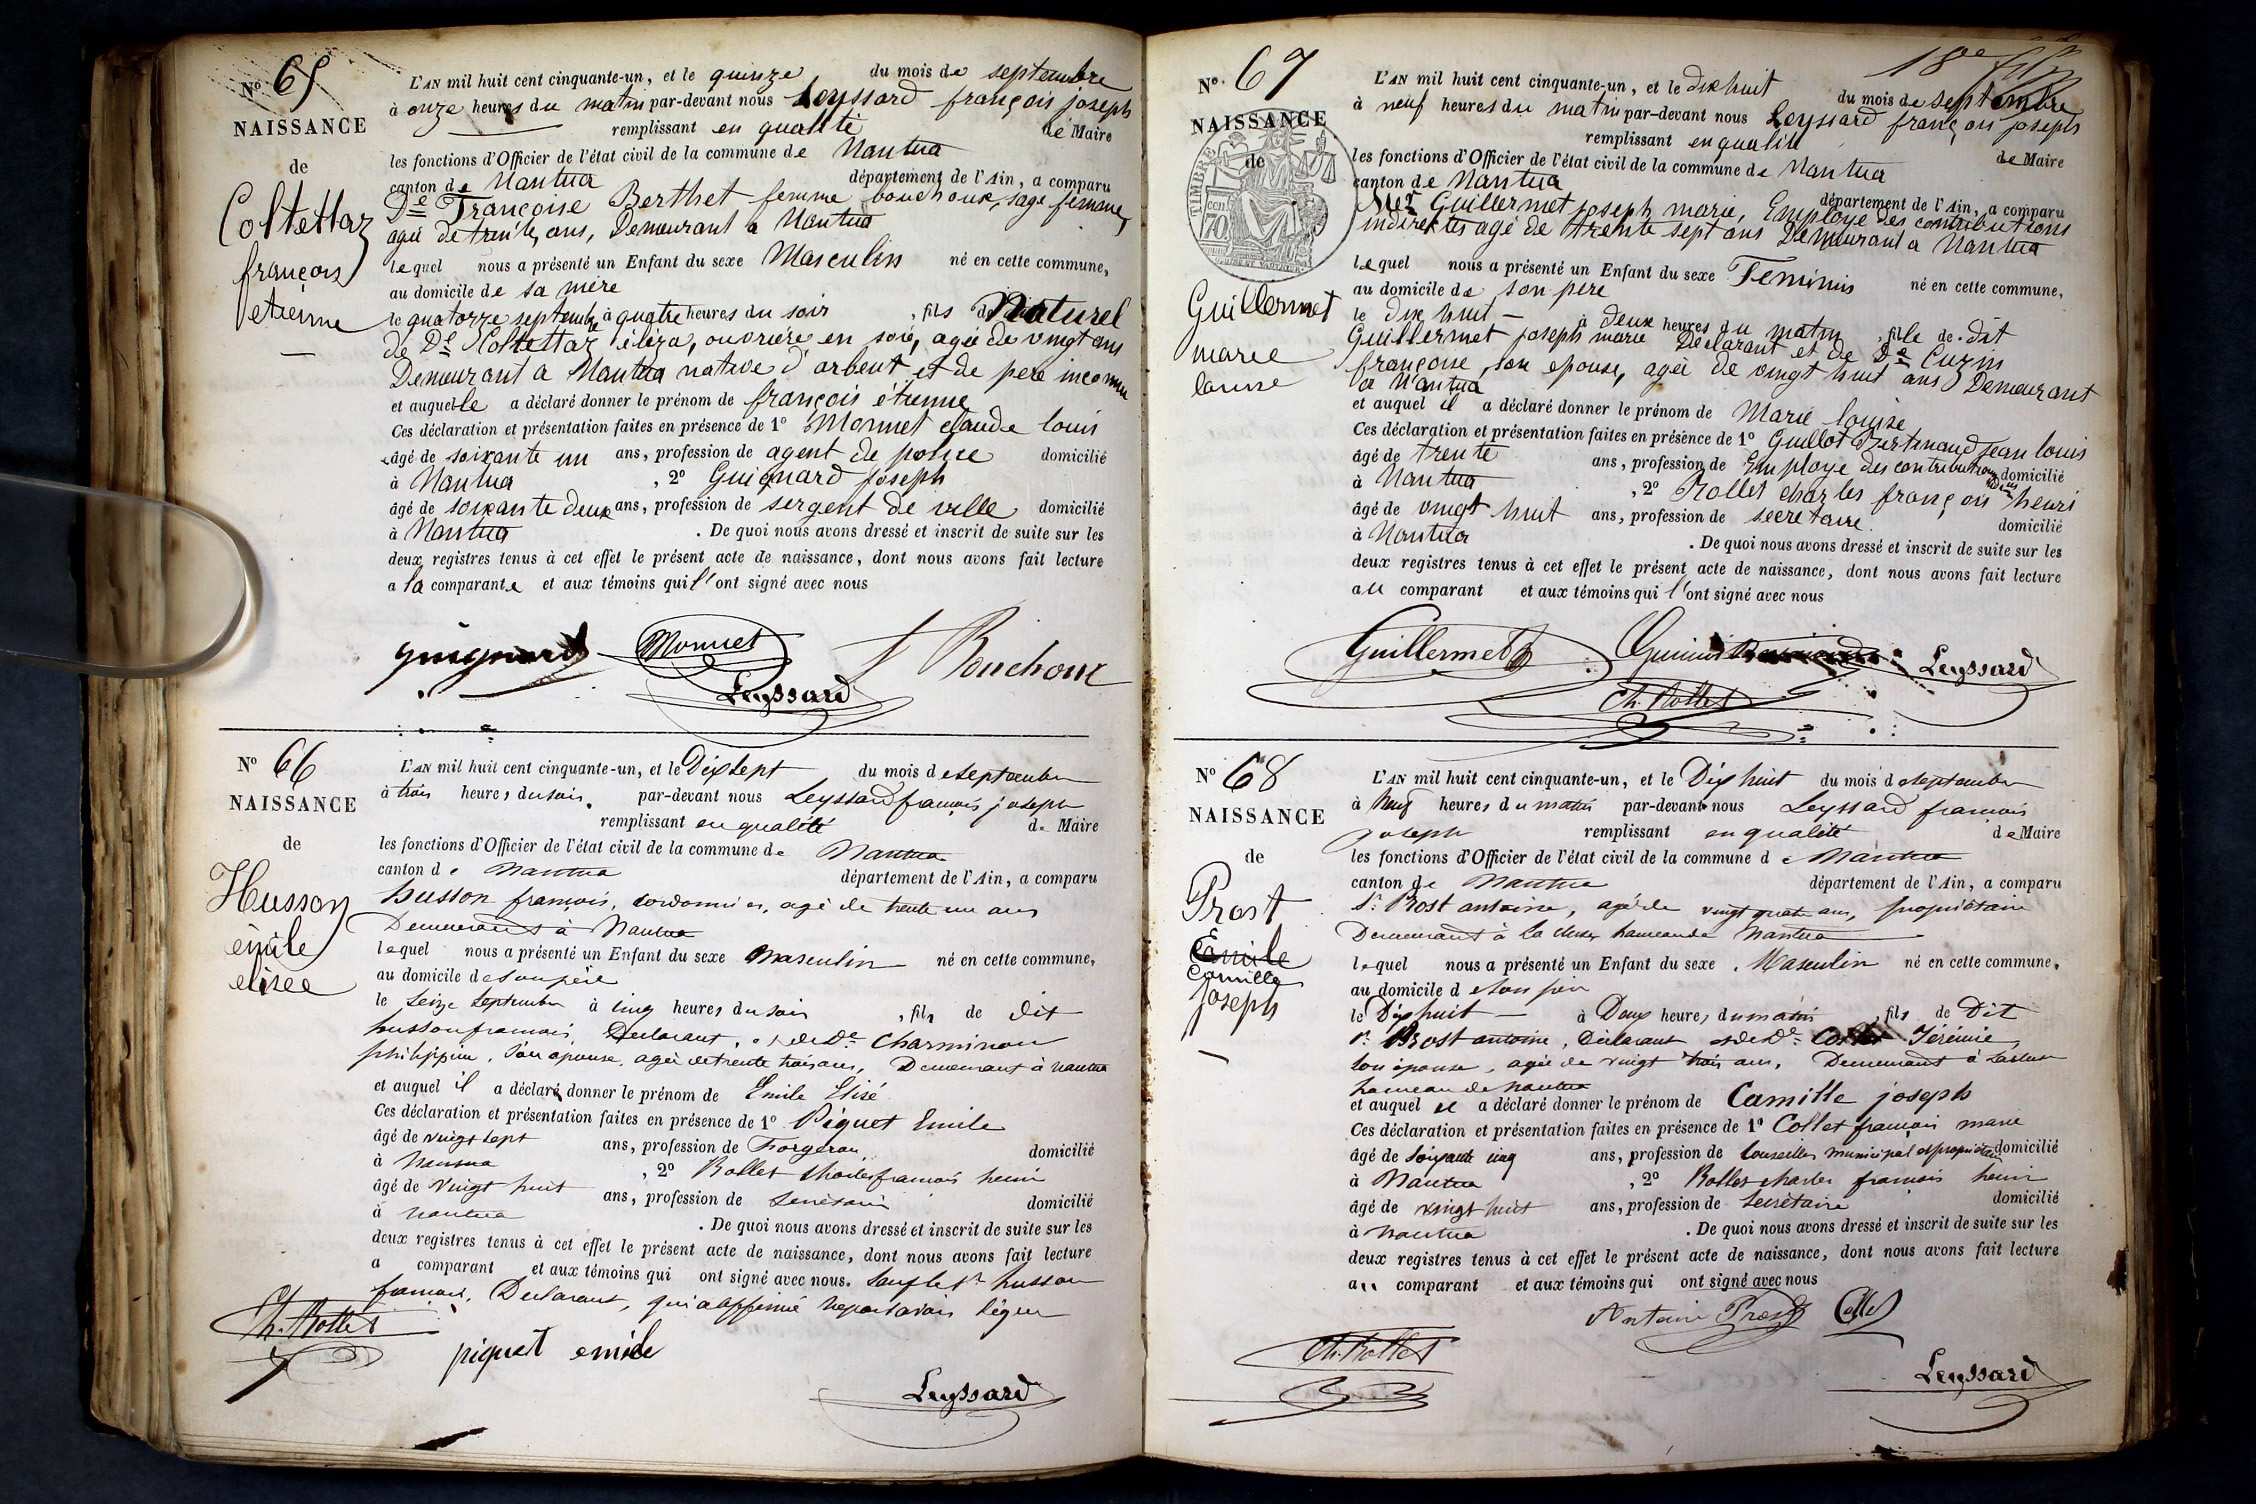 N° 65
NAISSANCE
de
Coltettaz
françois
etienne
L'AN mil huit cent cinquante-un, et le quinze du mois de septembre
à onze heures du matin par-devant nous Leyssard françois joseph
remplissant en qualité de Maire
les fonctions d'Officier de l'état civil de la commune de Nantua
canton de Nantua département de l'Ain, a comparu
De Françoise Berthet femme bouchoux, sage femme,
agée de trente ans, Demeurant a Nantua
lequel nous a présenté un Enfant du sexe Masculin né en cette commune,
au domicile de sa mère
le quatorze septembre à quatre heures du soir , fils de Naturel
de De Coltettaz éliza, ouvrière en soie, agée de vingt ans
Demeurant a Nantua native d'arbent et de pere inconnu
et auquel le a déclaré donner le prénom de françois étienne
Ces déclaration et présentation faites en présence de 1° Monnet claude louis
âgé de soixante un ans, profession de agent de police domicilié
à Nantua , 2° Guignard joseph
âgé de soixante deux ans, profession de sergent de ville domicilié
à Nantua . De quoi nous avons dressé et inscrit de suite sur les
deux registres tenus à cet effet le présent acte de naissance, dont nous avons fait lecture
a la comparante et aux témoins qui l'ont signé avec nous
guignard Monnet f Bouchoux
Leyssard
N° 66
NAISSANCE
de
Husson
émile
elisée
L'AN mil huit cent cinquante-un, et le Dix sept du mois de septembre
à trois heures du soir par-devant nous Leyssard françois joseph
remplissant en qualité de Maire
les fonctions d'Officier de l'état civil de la commune de Nantua
canton de Nantua département de l'Ain, a comparu
husson françois, cordonnier, agé de trente un ans
Demeurant à Nantua
lequel nous a présenté un Enfant du sexe Masculin né en cette commune,
au domicile de son père
le seize septembre à cinq heures du soir , fils de dit
husson françois, Déclarant, et de De Charminon
philippine, son épouse, agée de trente trois ans, Demeurant à nantua
et auquel il a déclaré donner le prénom de Emile Elisé
Ces déclaration et présentation faites en présence de 1° Piquet Emile
âgé de vingt sept ans, profession de Forgeron domicilié
à Nantua , 2° Rollet charles françois henri
âgé de vingt huit ans, profession de secrétaire domicilié
à nantua . De quoi nous avons dressé et inscrit de suite sur les
deux registres tenus à cet effet le présent acte de naissance, dont nous avons fait lecture
a comparant et aux témoins qui ont signé avec nous. sauf le sr husson
françois, Déclarant, qui a affirmé ne pas savoir signer
Ch. Rollet
piquet emile
Leyssard
18e
N° 67
NAISSANCE
de
TIMBRE
70 cen
Guillermet
marie
louise
L'AN mil huit cent cinquante-un, et le dix huit du mois de septembre
à neuf heures du matin par-devant nous Leyssard françois joseph
remplissant en qualité de Maire
les fonctions d'Officier de l'état civil de la commune de Nantua
canton de Nantua département de l'Ain, a comparu
Guillermet joseph marie, Employé des contributions
indirectes agé de trente sept ans Demeurant a Nantua
lequel nous a présenté un Enfant du sexe Feminin né en cette commune,
au domicile de son pere
le dix huit à deux heures du matin , fille de dit
Guillermet joseph marie Déclarant et de De Cuzin
françoise, son epouse, agée de vingt huit ans Demeurant
a Nantua
et auquel il a déclaré donner le prénom de Marie louise
Ces déclaration et présentation faites en présence de 1° Guillot Bertinaud jean louis
âgé de trente ans, profession de Employe des contributions domicilié
à Nantua , 2° Rollet charles françois henri
âgé de vingt huit ans, profession de secretaire domicilié
à Nantua . De quoi nous avons dressé et inscrit de suite sur les
deux registres tenus à cet effet le présent acte de naissance, dont nous avons fait lecture
au comparant et aux témoins qui l'ont signé avec nous
Guillermet Leyssard
Ch. Rollet
N° 68
NAISSANCE
de
Prost
Emile
Camille
joseph
L'AN mil huit cent cinquante-un, et le Dix huit du mois de septembre
à Neuf heures du matin par-devant nous Leyssard françois
joseph remplissant en qualité de Maire
les fonctions d'Officier de l'état civil de la commune de Nantua
canton de Nantua département de l'Ain, a comparu
sr Prost antoine, agé de vingt quatre ans, propriétaire
Demeurant à la cluse hameau de Nantua
lequel nous a présenté un Enfant du sexe Masculin né en cette commune,
au domicile de son père
le Dix huit à Deux heures du matin , fils de Dit
sr Prost antoine, Déclarant et de De Jérémie,
son épouse, agée de vingt trois ans, Demeurant à lacluse
hameau de nantua
et auquel il a déclaré donner le prénom de Camille joseph
Ces déclaration et présentation faites en présence de 1° Collet françois marie
âgé de soixante cinq ans, profession de Conseiller municipal et propriétaire domicilié
à Nantua , 2° Rollet charles françois henri
âgé de vingt huit ans, profession de secrétaire domicilié
à nantua . De quoi nous avons dressé et inscrit de suite sur les
deux registres tenus à cet effet le présent acte de naissance, dont nous avons fait lecture
au comparant et aux témoins qui ont signé avec nous
Antoine Prost Collet
Ch. Rollet
Leyssard